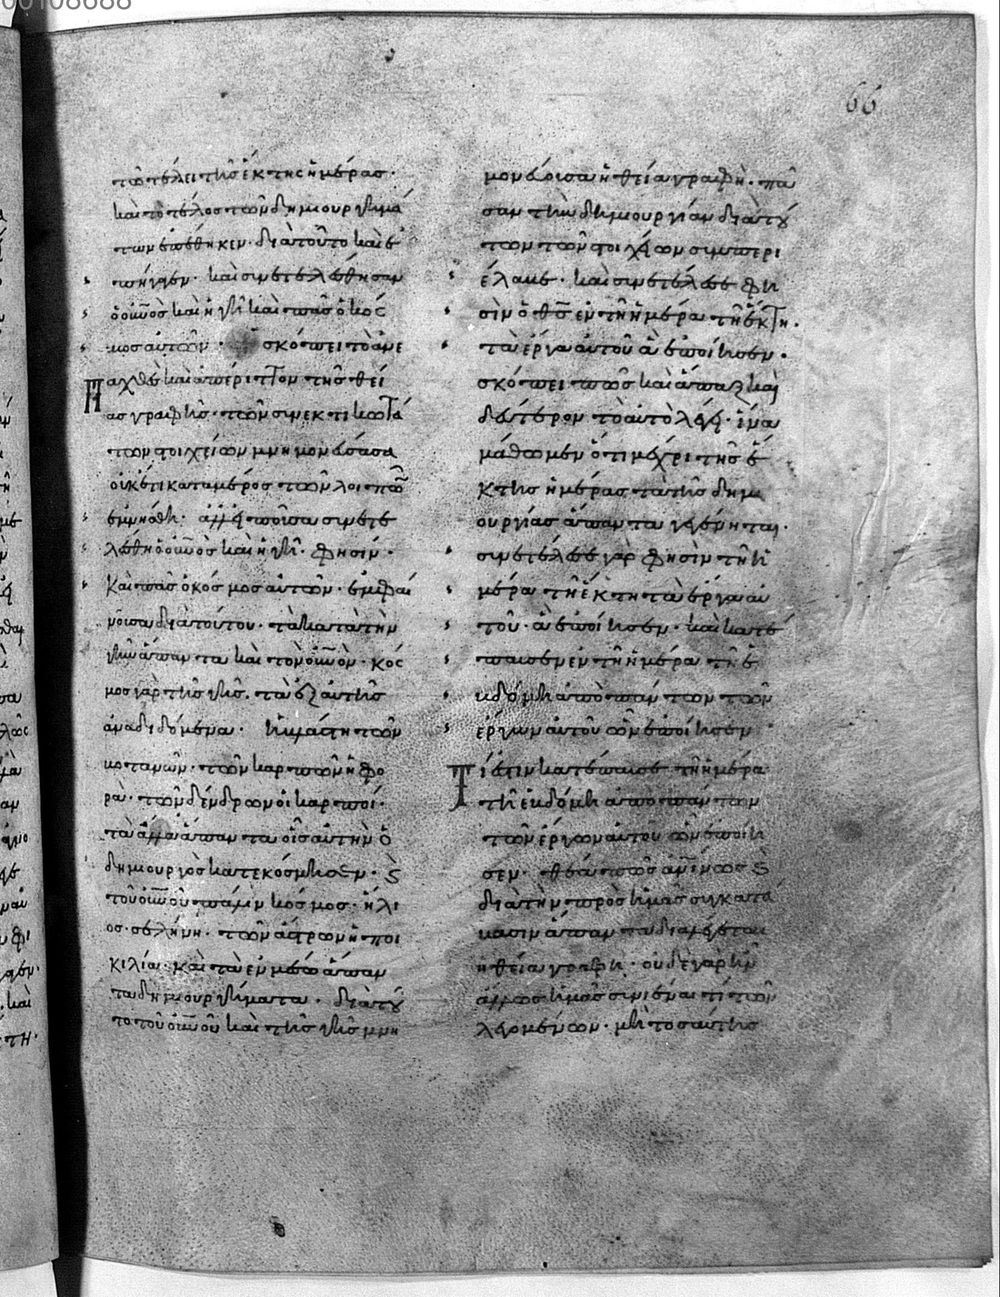 66
τῶ τέλει τῆς ἕκτης ἡμέρας·
καὶ τὸ τέλος τῶν δημιουργημά
των ἐπέθηκεν· διὰ τοῦτο καὶ ἐ
πήγαγεν· καὶ συνετελέσθησαν
ὁ οὐνὸς καὶ ἡ γῆ καὶ πᾶς ὁ κόσ
μος αὐτῶν· σκόπει τὸ ἀπε
ριττον τῆς θεί
ας γραφῆς· τῶν συνεκτικωτά
των στοιχείων μνημονεύσασα
οὐκέτι κατὰ μέρος τῶν λοιπῶν
ἐμνήσθη· ἀλλ' εἰποῦσα συνετε
λέσθη ὁ οὐνὸς καὶ ἡ γῆ· φησίν·
καὶ πᾶς ὁ κόσμος αὐτῶν· ἐμφαί
νουσα διὰ τούτου· τὰ κατὰ τὴν
γῆν ἅπαντα καὶ τὸν οὐνόν· κόσ
μος γὰρ τῆς γῆς· τὰ ἐξ αὐτῆς
ἀναδιδόμενα· ἡ βλάστη τῶν
βοτανῶν· τῶν καρπῶν ἡ φο
ρά· τῶν δένδρων οἱ καρποί·
τὰ ἄλλα ἅπαντα οἷς αὐτὴν ὁ
δημιουργὸς κατεκόσμησεν·
τοῦ οὐνοῦ πάλιν κόσμος· ἥλι
ος· σελήνη· τῶν ἄστρων ἡ ποι
κιλία· καὶ τὰ ἐν μέσω ἅπαν
τα δημιουργήματα· διὰ τοῦ
το τοῦ οὐνοῦ καὶ τῆς γῆς μνη
μονεύουσα ἡ θεία γραφή· πᾶ
σαν τὴν δημιουργίαν διὰ τού
των τῶν στοιχείων συμπερι
έλαβε· καὶ συνετέλεσε φη
σὶν ὁ θς ἐν τῆ ἡμέρα τῆ ἕκτη·
τὰ ἔργα αὐτοῦ ἃ ἐποίησεν·
σκόπει πῶς καὶ ἅπαξ καὶ
δεύτερον τὸ αὐτὸ λέγει· ἵνα
μάθωμεν ὅτι μέχρι τῆς ἕ
κτης ἡμέρας τὰ τῆς δημι
ουργίας ἅπαντα γεγένηται·
συνετέλεσε γὰρ φησὶν τῆ ἡ
μέρα τῆ ἕκτη τὰ ἔργα αὐ
τοῦ· ἃ ἐποίησεν· καὶ κατέ
παυσεν ἐν τῆ ἡμέρα τῆ ἑ
βδόμη ἀπὸ πάντων τῶν
ἔργων αὐτοῦ ὧν ἐποίησεν·
Τί ἐστιν κατέπαυσε τῆ ἡμέρα
τῆ ἑβδόμη ἀπὸ πάντων
τῶν ἔργων αὐτοῦ ὧν ἐποίη
σεν· θέα πῶς ἀνινως
διὰ τὴν πρὸς ἡμᾶς συγκατά
βασιν ἅπαντα διαλέγεται
ἡ θεία γραφή· οὐδὲ γὰρ ἦν
ἄλλως ἡμᾶς συνιέναι τι τῶν
λεγομένων· μὴ τοσαύτης